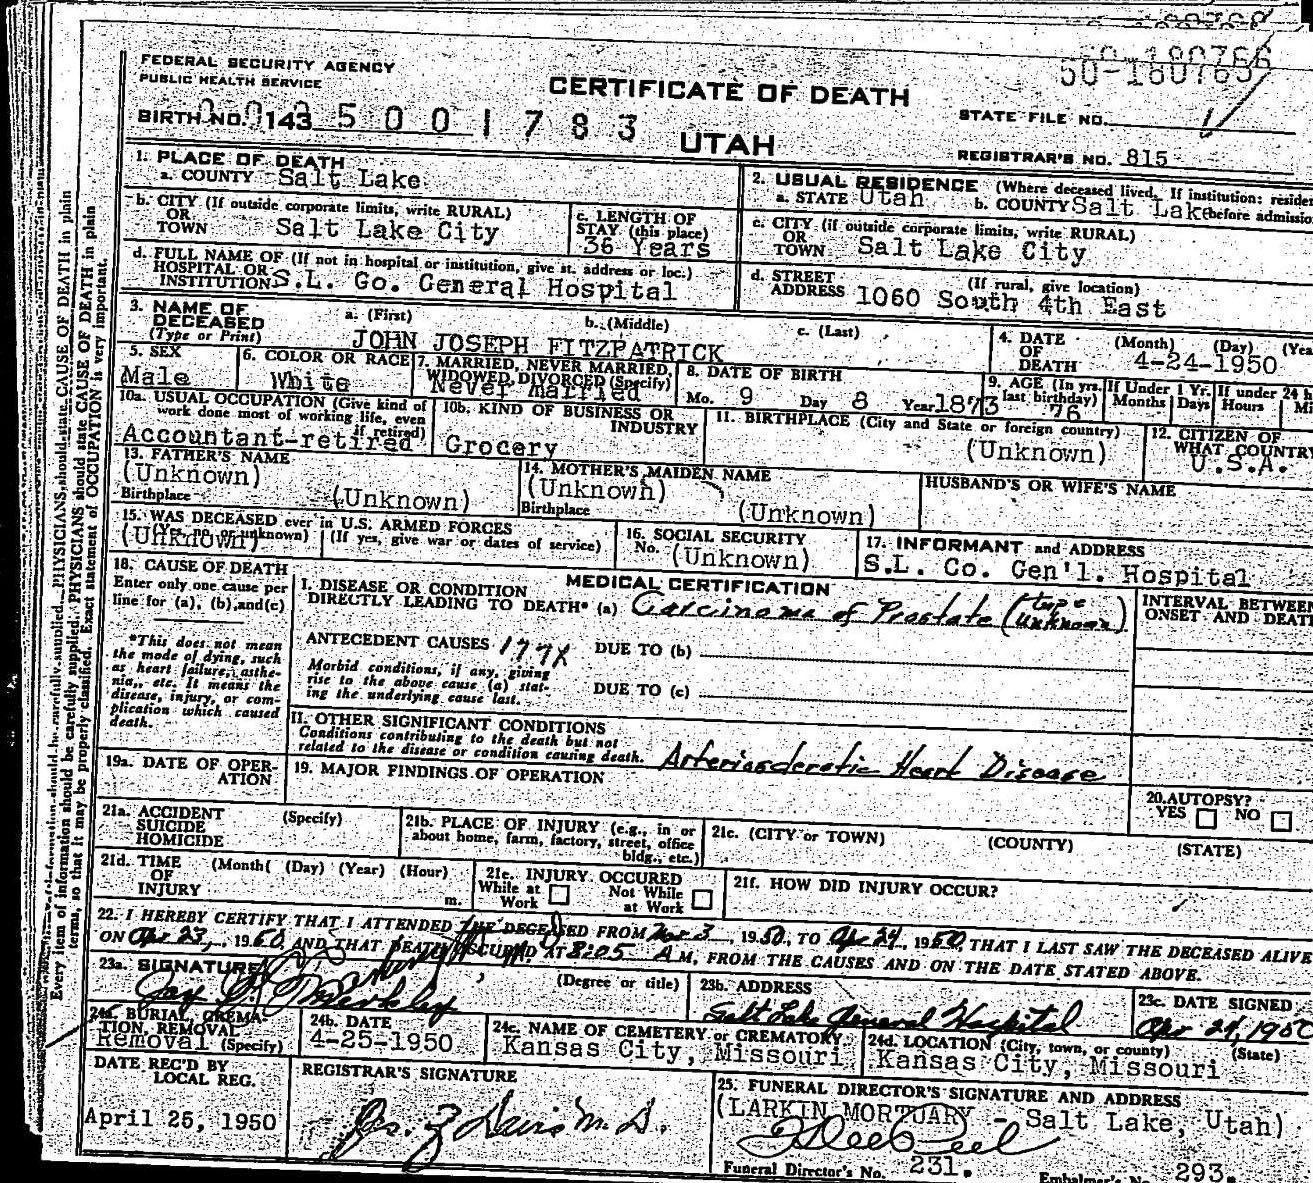 50-180766
50-180765
FEDERAL SECURITY AGENCY
PUBLIC HEALTH SERVICE
CERTIFICATE OF DEATH
UTAH
BIRTH NO. 143 5 0 0 1 7 8 3
STATE FILE NO.
REGISTRAR'S NO. 815
1. PLACE OF DEATH
a. COUNTY Salt Lake
2. USUAL RESIDENCE (Where deceased lived. If institution:
a. STATE Utah b. COUNTY Salt Lake (before
b. CITY (If outside corporate limits, write RURAL)
OR
TOWN Salt Lake City
c. LENGTH OF
STAY (this place)
36 Years
c. CITY (if outside corporate limits, write RURAL)
OR
TOWN Salt Lake City
d. FULL NAME OF (If not in hospital or institution, give st. address or loc.)
HOSPITAL OR
INSTITUTION S.L. Co. General Hospital
d. STREET (If rural, give location)
ADDRESS 1060 South 4th East
3. NAME OF
DECEASED
(Type or Print)
a. (First) b. (Middle) c. (Last)
JOHN JOSEPH FITZPATRICK
4. DATE (Month) (Day)
OF
DEATH 4-24-1950
5. SEX
Male
6. COLOR OR RACE
White
7. MARRIED, NEVER MARRIED,
WIDOWED, DIVORCED (Specify)
Never married
8. DATE OF BIRTH
Mo. 9 Day 8 Year 1873
9. AGE (In yrs. last birthday) 76
If Under 1 Yr.
Months Days
If under 24
Hours
10a. USUAL OCCUPATION (Give kind of
work done most of working life, even
if retired)
Accountant-retired
10b. KIND OF BUSINESS OR
INDUSTRY
Grocery
11. BIRTHPLACE (City and State or foreign country)
(Unknown)
12. CITIZEN OF
WHAT COUNTRY
U.S.A.
13. FATHER'S NAME
(Unknown)
Birthplace (Unknown)
14. MOTHER'S MAIDEN NAME
(Unknown)
Birthplace (Unknown)
HUSBAND'S OR WIFE'S NAME
15. WAS DECEASED ever in U.S. ARMED FORCES
(Yes, no, or unknown) (If yes, give war or dates of service)
(Unknown)
16. SOCIAL SECURITY
No. (Unknown)
17. INFORMANT and ADDRESS
S.L. Co. Gen'l. Hospital
18. CAUSE OF DEATH
Enter only one cause per
line for (a), (b), and (c)
*This does not mean
the mode of dying, such
as heart failure, asthe-
nia, etc. It means the
disease, injury, or com-
plication which caused
death.
MEDICAL CERTIFICATION
I. DISEASE OR CONDITION
DIRECTLY LEADING TO DEATH* (a) Carcinoma of Prostate (type unknown)
INTERVAL BETWEEN
ONSET AND DEATH
ANTECEDENT CAUSES 177X DUE TO (b)
Morbid conditions, if any, giving
rise to the above cause (a) stat-
ing the underlying cause last.
DUE TO (c)
II. OTHER SIGNIFICANT CONDITIONS
Conditions contributing to the death but not
related to the disease or condition causing death. Arteriosclerotic Heart Disease
19a. DATE OF OPER-
ATION
19. MAJOR FINDINGS OF OPERATION
20. AUTOPSY?
YES NO
21a. ACCIDENT (Specify)
SUICIDE
HOMICIDE
21b. PLACE OF INJURY (e.g., in or
about home, farm, factory, street, office
bldg., etc.)
21c. (CITY or TOWN) (COUNTY) (STATE)
21d. TIME (Month) (Day) (Year) (Hour)
OF
INJURY m.
21e. INJURY OCCURED
While at Work Not While at Work
21f. HOW DID INJURY OCCUR?
22. I HEREBY CERTIFY THAT I ATTENDED THE DECEASED FROM Mar 3, 1950, TO Apr 24, 1950, THAT I LAST SAW THE DECEASED ALIVE
ON Apr 23, 1950, AND THAT DEATH OCCURRED AT 8:05 A M, FROM THE CAUSES AND ON THE DATE STATED ABOVE.
23a. SIGNATURE (Degree or title)
Jay
23b. ADDRESS
Salt Lake General Hospital
23c. DATE SIGNED
Apr 24, 1950
24a. BURIAL, CREMA-
TION, REMOVAL
Removal (Specify)
24b. DATE
4-25-1950
24c. NAME OF CEMETERY or CREMATORY
Kansas City, Missouri
24d. LOCATION (City, town, or county) (State)
Kansas City, Missouri
DATE REC'D BY
LOCAL REG.
April 25, 1950
REGISTRAR'S SIGNATURE
Davis M.D.
25. FUNERAL DIRECTOR'S SIGNATURE AND ADDRESS
(LARKIN MORTUARY - Salt Lake, Utah)
Funeral Director's No. 231.
Embalmer's No. 293.
Every item of information should be carefully supplied. PHYSICIANS should state CAUSE OF DEATH in plain
terms, so that it may be properly classified. Exact statement of OCCUPATION is very important.